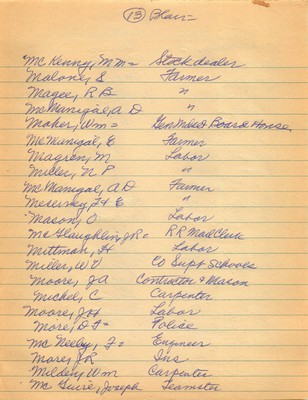 (13) Blair=
McKenny, M M = Stock dealer
Maloney, S Farmer
Magee, R B "
McManigal, A D "
Maher, Wm = Gen Mdse & Board House
McManigal, E Farmer
Magren, M Labor
Miller, N P "
McManigal, A D Farmer
Meservey, F & E "
Mason, O Labor
McGlaughlin, J R = R R Mail Clerk
Mittman, H Labor
Miller, W V Co Supt Schools
Moore, J A Contractor & Mason
Michel, C Carpenter
Moore, J H Labor
More, D F = Police
McNeeley, F = Engineer
More, J R Ins
Milden, Wm Carpenter
McGuire, Joseph Teamster